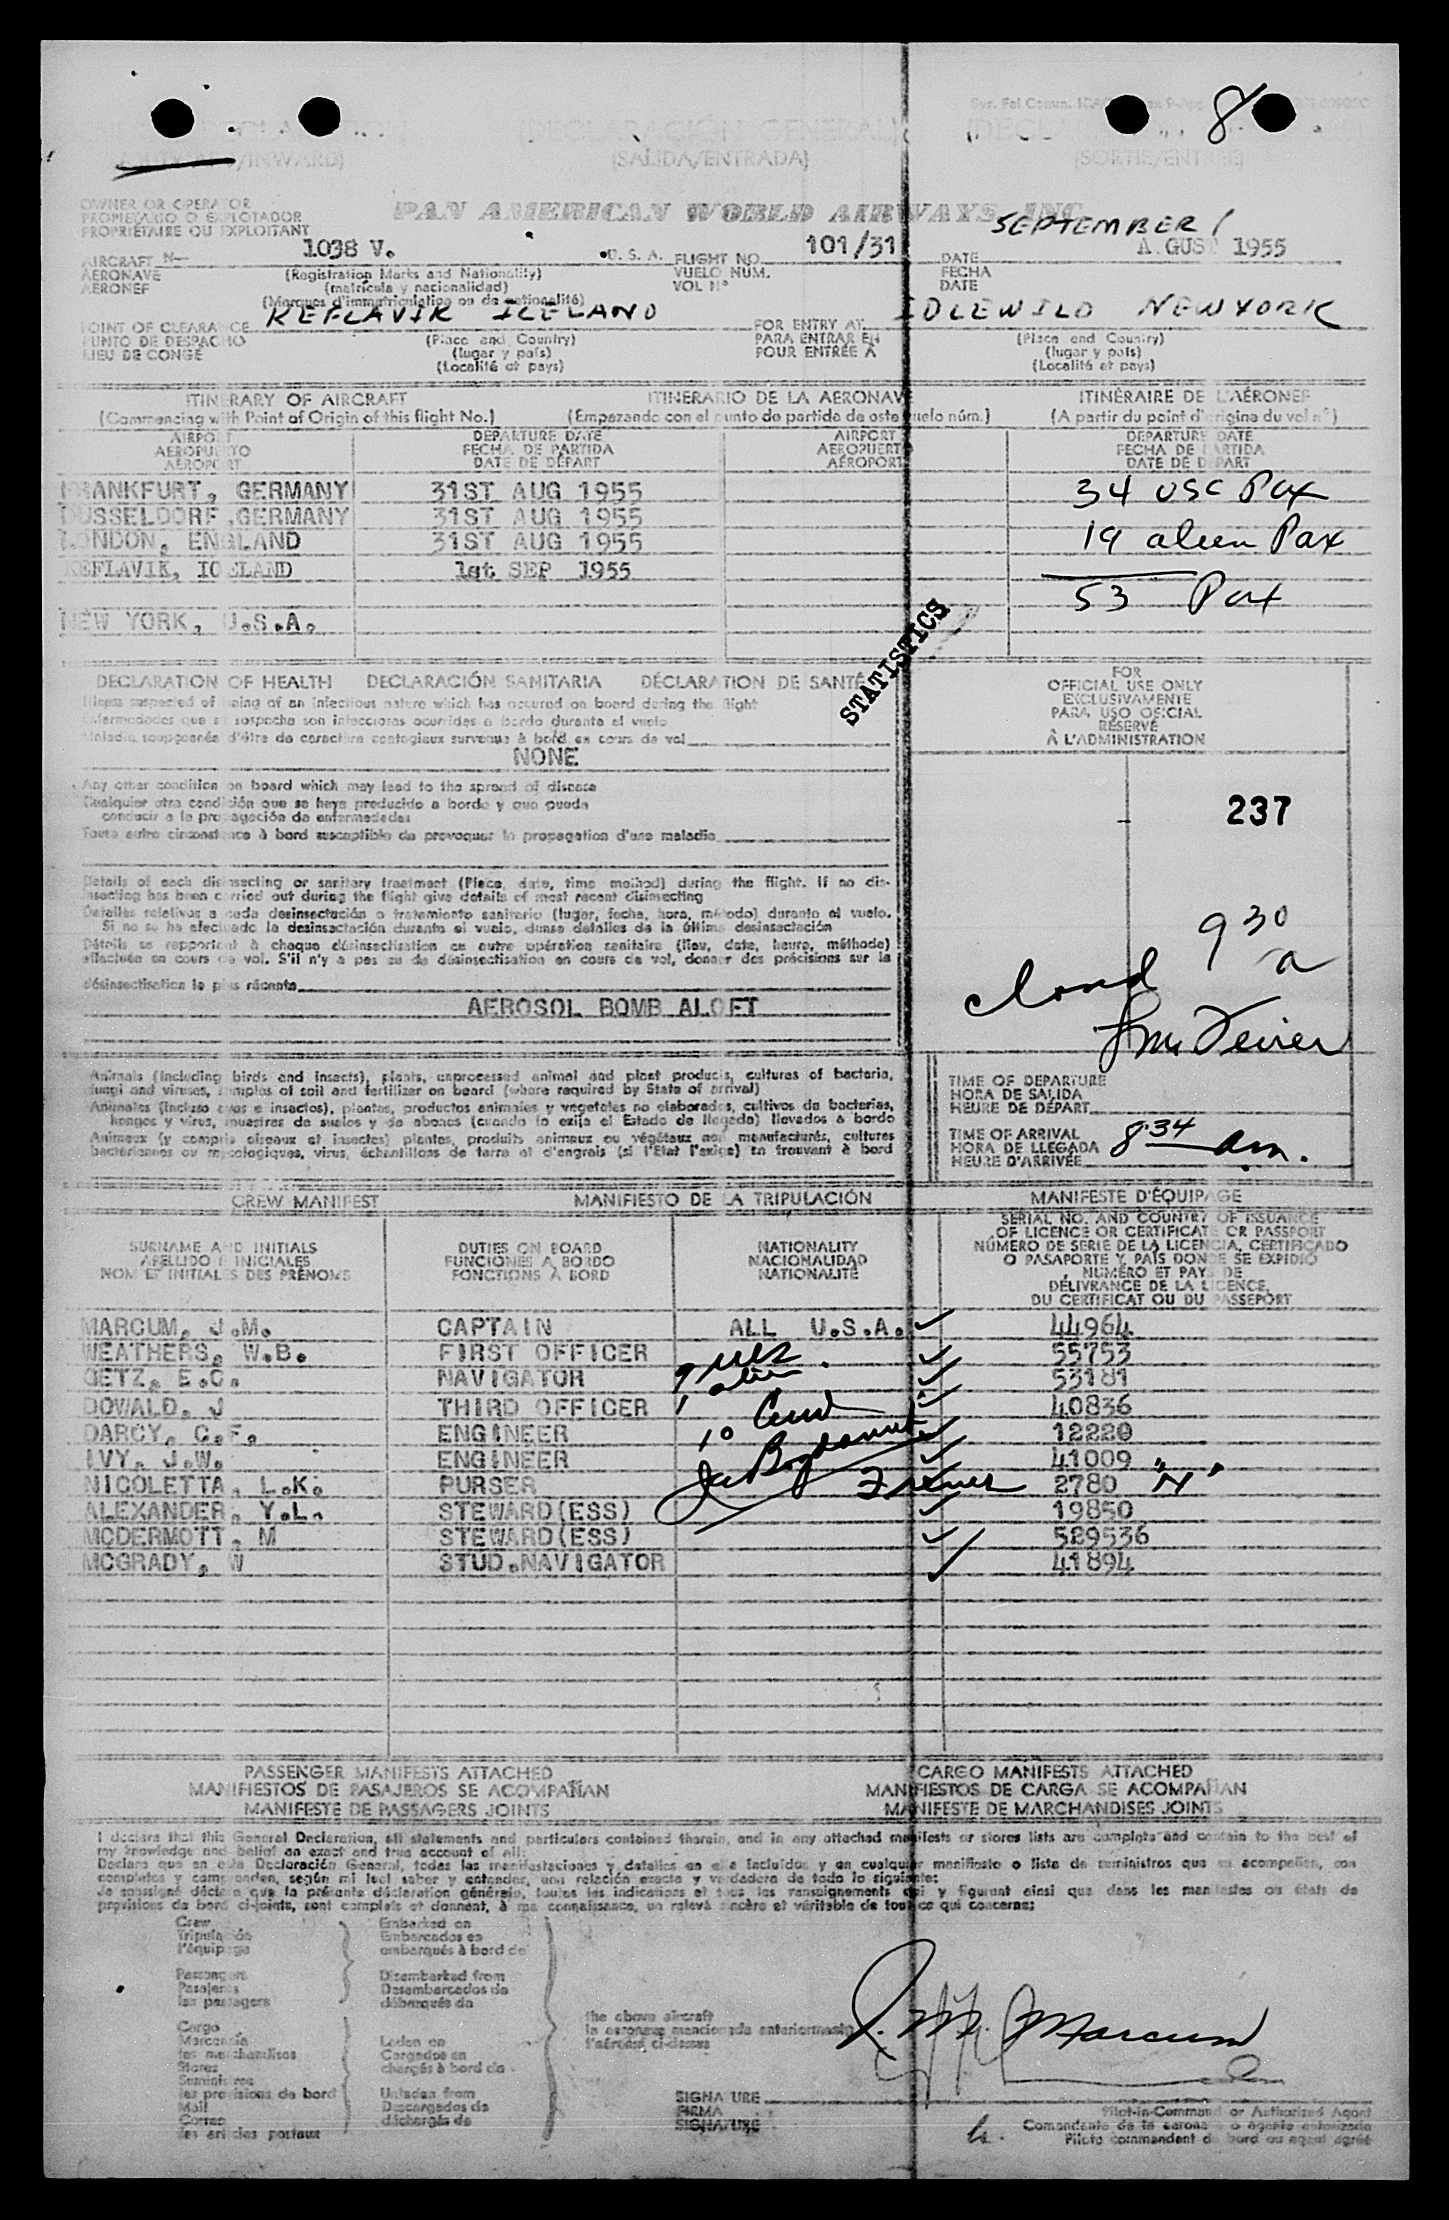 8
(DECLARACIÓN GENERAL)
/INWARD) (SALIDA/ENTRADA) (SORTIE/ENTRÉE)
OWNER OR OPERATOR
PROPIETARIO O EXPLOTADOR
PROPRIÉTAIRE OU EXPLOITANT
PAN AMERICAN WORLD AIRWAYS, INC.
SEPTEMBER 1
AIRCRAFT N- 1038 V. U. S. A. FLIGHT NO. 101/31 DATE A GUST 1955
AERONAVE (Registration Marks and Nationality) VUELO NÚM. FECHA
AÉRONEF (matrícula y nacionalidad) VOL Nº DATE
(Marques d'immatriculation ou de nationalité)
POINT OF CLEARANCE KEFLAVIK ICELAND FOR ENTRY AT IDLEWILD NEW YORK
PUNTO DE DESPACHO (Place and Country) PARA ENTRAR EN (Place and Country)
LIEU DE CONGÉ (lugar y país) POUR ENTRÉE À (lugar y país)
(Localité et pays) (Localité et pays)
ITINERARY OF AIRCRAFT ITINERARIO DE LA AERONAVE ITINÉRAIRE DE L'AÉRONEF
(Commencing with Point of Origin of this flight No.) (Empezando con el punto de partida de este vuelo núm.) (A partir du point d'origine du vol nº)
AIRPORT DEPARTURE DATE AIRPORT DEPARTURE DATE
AEROPUERTO FECHA DE PARTIDA AEROPUERTO FECHA DE PARTIDA
AÉROPORT DATE DE DÉPART AÉROPORT DATE DE DÉPART
FRANKFURT, GERMANY 31ST AUG 1955 34 USC Pax
DUSSELDORF,GERMANY 31ST AUG 1955
LONDON, ENGLAND 31ST AUG 1955 19 alien Pax
KEFLAVIK, ICELAND 1st SEP 1955
53 Pax
NEW YORK, U.S.A.
STATISTICS
DECLARATION OF HEALTH DECLARACIÓN SANITARIA DÉCLARATION DE SANTÉ
Illness suspected of being of an infectious nature which has occured on board during the flight
Enfermedades que se sospecha son infecciosas ocurridas a bordo durante el vuelo
Maladie soupçonnée d'être de caractère contagieux survenue à bord en cours de vol
NONE
Any other condition on board which may lead to the spread of disease
Cualquier otra condición que se haya producido a bordo y que pueda
conducir a la propagación de enfermedades
Toute autre circonstance à bord susceptible de provoquer la propagation d'une maladie
Details of each disinsecting or sanitary treatment (Place, date, time method) during the flight. If no dis-
insecting has been carried out during the flight give details of most recent disinsecting
Detalles relativos a cada desinsectación o tratamiento sanitario (lugar, fecha, hora, método) durante el vuelo.
Si no se ha efectuado la desinsectación durante el vuelo, dense detalles de la última desinsectación
Détails se rapportant à chaque désinsectisation ou autre opération sanitaire (lieu, date, heure, méthode)
effectuée en cours de vol. S'il n'y a pas eu de désinsectisation en cours de vol, donner des précisions sur la
désinsectisation la plus récente
AEROSOL BOMB ALOFT
FOR
OFFICIAL USE ONLY
EXCLUSIVAMENTE
PARA USO OFICIAL
RÉSERVÉ
À L'ADMINISTRATION
237
9 30 a
Animals (including birds and insects), plants, unprocessed animal and plant products, cultures of bacteria,
fungi and viruses, samples of soil and fertilizer on board (where required by State of arrival)
Animales (incluso aves e insectos), plantas, productos animales y vegetales no elaborados, cultivos de bacterias,
hongos y virus, muestras de suelos y de abonos (cuando lo exija el Estado de llegada) llevados a bordo
Animaux (y compris oiseaux et insectes) plantes, produits animaux ou végétaux non manufacturés, cultures
bactériennes ou mycologiques, virus, échantillons de terre et d'engrais (si l'Etat l'exige) se trouvant à bord
TIME OF DEPARTURE
HORA DE SALIDA
HEURE DE DÉPART
TIME OF ARRIVAL 8:34 am.
HORA DE LLEGADA
HEURE D'ARRIVÉE
CREW MANIFEST MANIFIESTO DE LA TRIPULACIÓN MANIFESTE D'ÉQUIPAGE
SURNAME AND INITIALS
APELLIDO E INICIALES
NOM ET INITIALES DES PRÉNOMS
DUTIES ON BOARD
FUNCIONES A BORDO
FONCTIONS À BORD
NATIONALITY
NACIONALIDAD
NATIONALITÉ
SERIAL NO. AND COUNTRY OF ISSUANCE
OF LICENCE OR CERTIFICATE OR PASSPORT
NÚMERO DE SERIE DE LA LICENCIA, CERTIFICADO
O PASAPORTE Y PAÍS DONDE SE EXPIDIÓ
NUMÉRO ET PAYS DE
DÉLIVRANCE DE LA LICENCE,
DU CERTIFICAT OU DU PASSEPORT
MARCUM, J.M. CAPTAIN ALL U.S.A. 44964
WEATHERS, W.B. FIRST OFFICER 55753
GETZ, E.C. NAVIGATOR 53181
DOVALD, J THIRD OFFICER 40836
DARCY, C.F. ENGINEER 12220
IVY, J.W. ENGINEER 41009
NICOLETTA, L.K. PURSER 2780 "N"
ALEXANDER, Y.L. STEWARD(ESS) 19850
MCDERMOTT, M STEWARD(ESS) 529536
MCGRADY, W STUD.NAVIGATOR 41894
9 USC
1 alien
10 Crew
PASSENGER MANIFESTS ATTACHED CARGO MANIFESTS ATTACHED
MANIFIESTOS DE PASAJEROS SE ACOMPAÑAN MANIFIESTOS DE CARGA SE ACOMPAÑAN
MANIFESTE DE PASSAGERS JOINTS MANIFESTE DE MARCHANDISES JOINTS
I declare that this General Declaration, all statements and particulars contained therein, and in any attached manifests or stores lists are complete and contain to the best of
my knowledge and belief an exact and true account of all:
Declaro que en esta Declaración General, todas las manifestaciones y detalles en ella incluídos y en cualquier manifiesto o lista de suministros que se acompañen, son
completos y comprenden, según mi leal saber y entender, una relación exacta y verdadera de todo lo siguiente:
Je soussigné déclare que la présente déclaration générale, toutes les indications et tous les renseignements qui y figurent ainsi que dans les manifestes ou états de
provisions de bord ci-joints, sont complets et donnent, à ma connaissance, un relevé sincère et véritable de tout ce qui concerne:
Crew Embarked on
Tripulación Embarcados en
l'équipage embarqués à bord de
Passengers Disembarked from
Pasajeros Desembarcados de
les passagers débarqués de
Cargo
Mercancía Laden on
les marchandises Cargados en
Stores chargés à bord de
Suministros
les provisions de bord Unladen from
Mail Descargados de
Correo déchargés de
les articles postaux
the above aircraft
la aeronave mencionada anteriormente
l'aéronef ci-dessus
J. M. Marcum
SIGNATURE
FIRMA
SIGNATURE
Pilot-in-Command or Authorized Agent
Comandante de la aeronave o agente autorizado
Pilote commandant de bord ou agent agréé